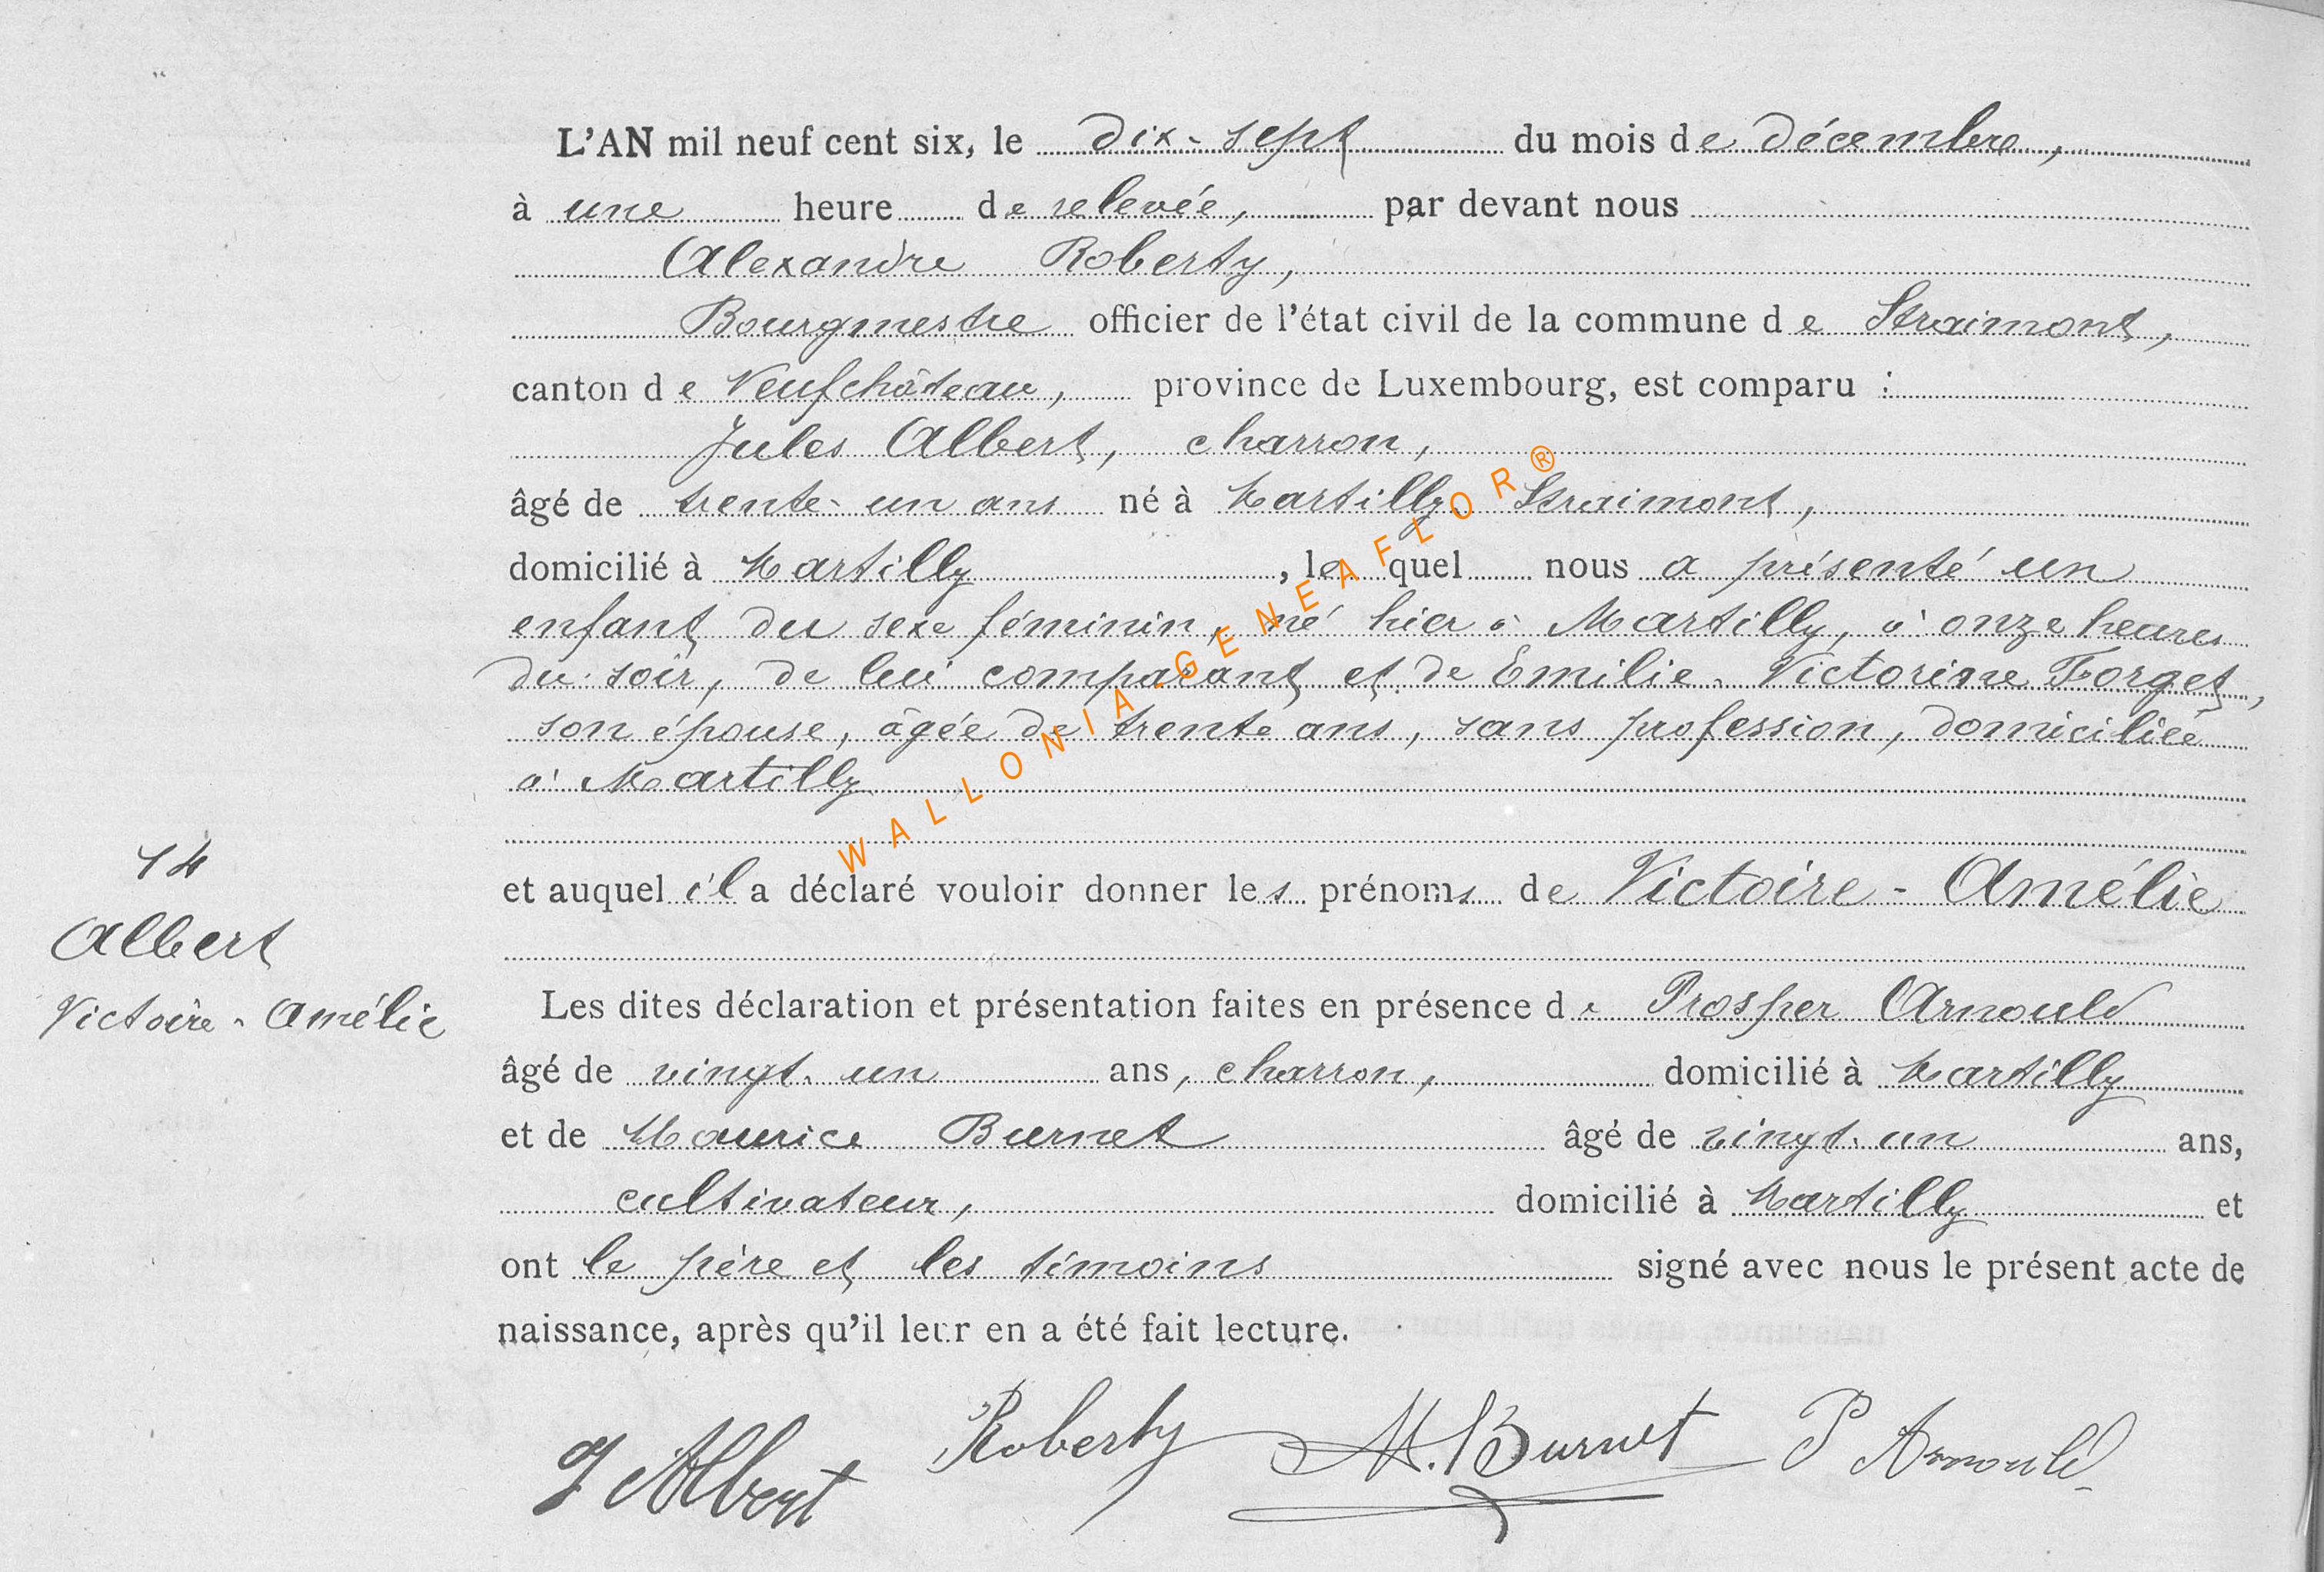 L'AN mil neuf cent six, le dix-sept du mois de décembre,
à une heure de relevée, par devant nous
Alexandre Roberty,
Bourgmestre officier de l'état civil de la commune de Straimont,
canton de Neufchâteau, province de Luxembourg, est comparu :
Jules Albert, charron,
âgé de trente-un ans né à Martilly-Straimont,
domicilié à Martilly, lequel nous a présenté un
enfant du sexe féminin, né hier à Martilly, à onze heures
du soir, de lui comparant et de Emilie-Victorine Forget,
son épouse, âgée de trente ans, sans profession, domiciliée
à Martilly
WALLONIA-GENEAFLOR®
14
et auquel il a déclaré vouloir donner les prénoms de Victoire-Amélie
Albert
Victoire-Amélie
Les dites déclaration et présentation faites en présence de Prosper Arnould
âgé de vingt-un ans, charron, domicilié à Martilly
et de Maurice Burnet âgé de vingt-un ans,
cultivateur, domicilié à Martilly et
ont le père et les témoins signé avec nous le présent acte de
naissance, après qu'il leur en a été fait lecture.
J Albert Roberty M. Burnet P Arnould